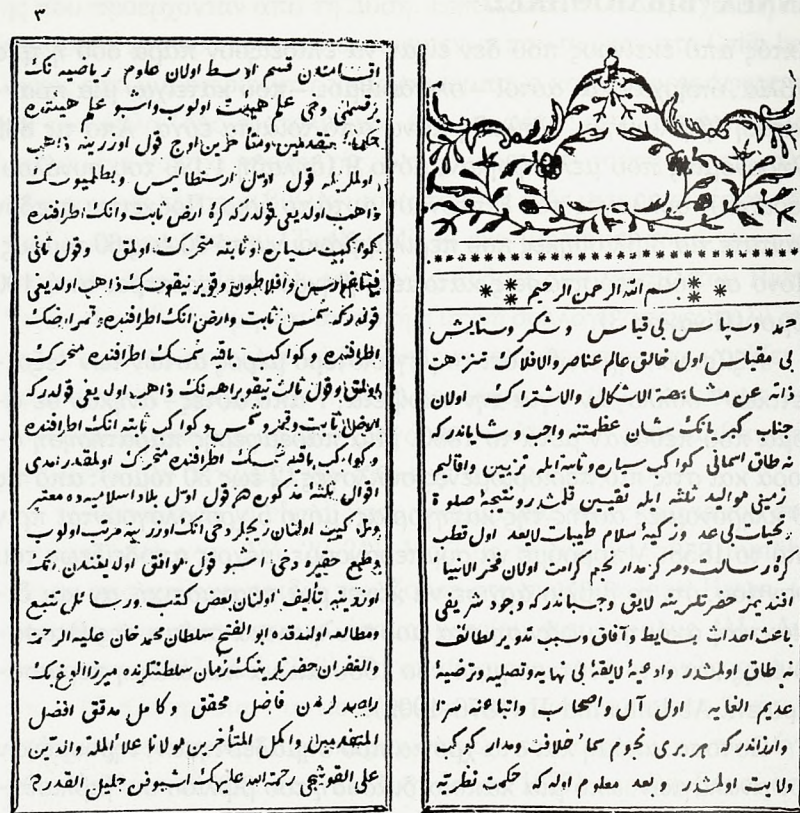 ٣
بسم الله الرحمن الرحيم
حمد وسپاس بی قیاس وشکر وستایش
بی مقیاس اول خالق عالم عناصر والافلاك تنزهت
ذاته عن مشابهة الاشکال والاشتراك اولان
جناب کبریانك شان عظمتنه واجب وشایاندرکه
نه طاق آسمانی کواکب سیاره وثابته ایله تزیین واقالیم
زمینی موالید ثلثه ایله قلمشدر ونتیجهٔ صلوة
تحیات بی عد وزکیهٔ سلام طیبات لایعد اول قطب
رسالت ومرکز مدار کرامت اولان فخر الانبیا
افندیمز حضرتلرینه لایق وچسپاندرکه وجود شریفی
باعث احداث بسایط وآفاق وسبب تدویر لطائف
نه طاق اولمشدر وادعیهٔ لایقهٔ بی نهایه وتصلیه وترضیهٔ
عدیم الغایه اول آل واصحاب واتباعنه سزا
وارزاندرکه هر بری نجوم سماء خلافت ومدار کوکب
ولایت اولمشدر وبعد معلوم اوله که حکمت نظریه
اقسامندن قسم اوسط اولان علوم ریاضیه نك
بر قسمی دخی علم هیئت اولوب واشبو علم هیئتده
حکماء متقدمین ومتأخرین اوچ قول اوزرینه ذاهب
اولملریله قول اول ارسطاطالیس وبطلمیوسك
ذاهب اولدیغی قولدرکه کرهٔ ارض ثابت وانك اطرافنده
کواکب سیاره وثابته متحرك اولمق وقول ثانی
فیثاغورس وافلاطون وقوپرنیقوسك ذاهب اولدیغی
قولدرکه شمس ثابت وارض انك اطرافنده وقمر ارضك
اطرافنده وکواکب باقیه شمسك اطرافنده متحرك
اولمق وقول ثالث تیقوبراهه نك ذاهب اولدیغی قولدرکه
ارض ثابت وقمر وشمس وکواکب ثابته انك اطرافنده
وکواکب باقیه شمسك اطرافنده متحرك اولمقدر ایمدی
اقوال ثلثهٔ مذکوره هر قول اول بلاد اسلامیه ده معتبر
وتألیف اولنان زیجلر دخی انك اوزرینه مرتب اولوب
وطبع حقیره دخی اشبو قول موافق اولدیغندن انك
اوزرینه تألیف اولنان بعض کتب ورسائل تتبع
ومطالعه اولندقده ابو الفتح سلطان محمد خان علیه الرحمة
والغفران حضرتلرینك زمان سلطنتلرنده میرزا الوغ بك
فاضل محقق وکامل مدقق افضل
المتقدمین واکمل المتأخرین مولانا علاء الملة والدین
علی القوشجی رحمة الله علیهك اشبو فن جلیل القدرده